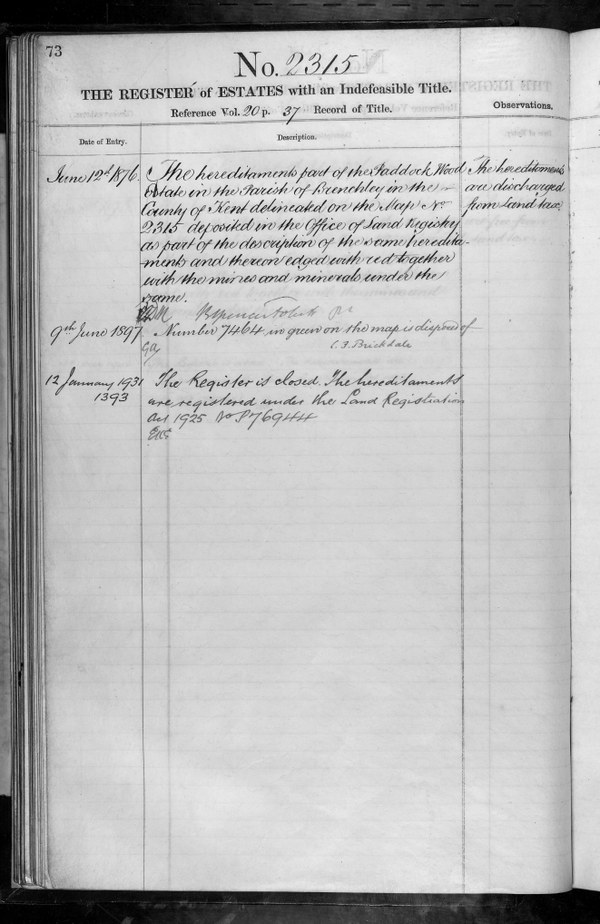 73
No. 2315
THE REGISTER of ESTATES with an Indefeasible Title.
Reference Vol. 20 p. 37 Record of Title.
Observations.
Date of Entry.
Description.
June 12th 1876
The hereditaments part of the Paddock Wood
Estate in the Parish of Brenchley in the
County of Kent delineated on the Map No
2315 deposited in the Office of Land Registry
as part of the description of the same heredita-
ments and thereon edged with red together
with the mines and minerals under the
same.
The hereditaments
are discharged
from Land tax.
9th June 1897
Number 7464 in green on the map is disposed of
C. F. Brickdale
12 January 1931
1393
The Register is closed. The hereditaments
are registered under the Land Registration
Act 1925 No P76944